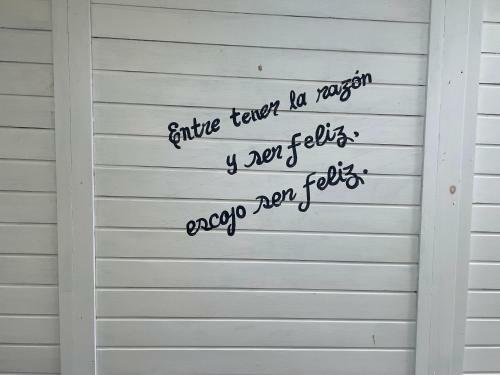 Entre tener la razón
y ser feliz.
escojo ser feliz.